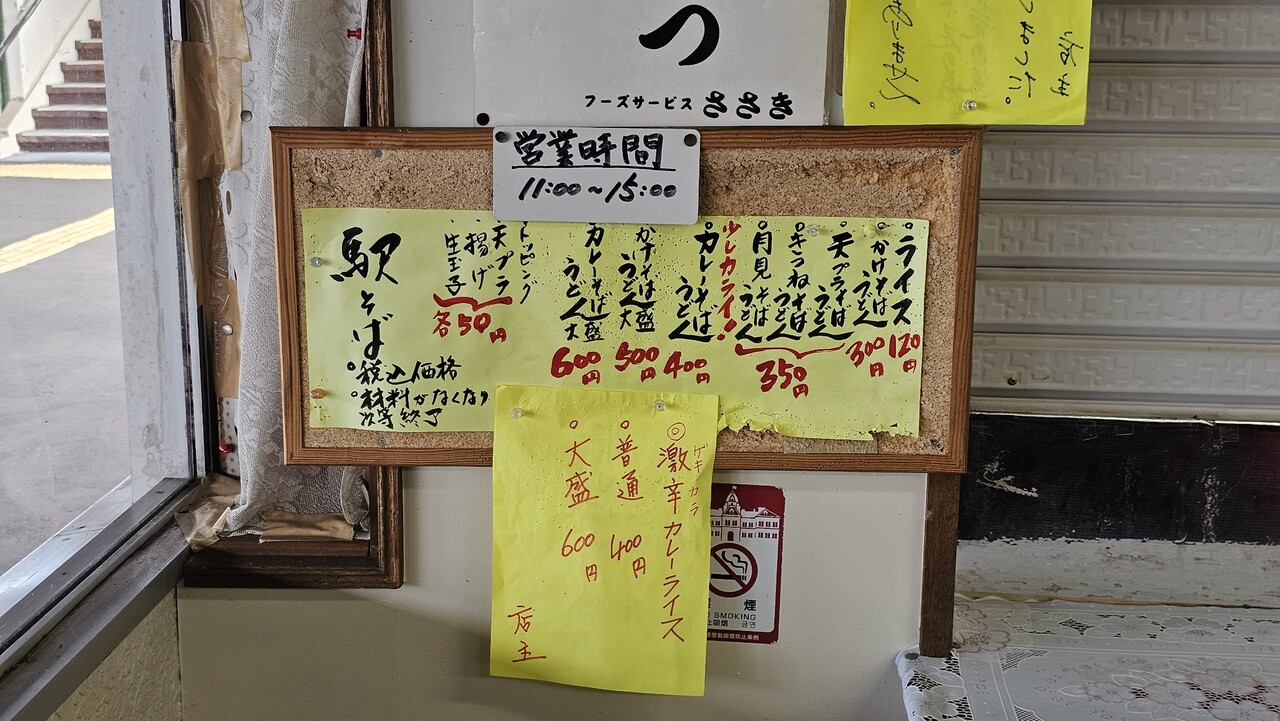 つ
フーズサービス ささき
営業時間
11:00～15:00
ライス 120円
かけそばうどん 300円
天プラそばうどん
きつねそばうどん
月見そばうどん
350円
少しカライ!
カレーそばうどん 400円
かけそばうどん大盛 500円
カレーそばうどん大盛 600円
トッピング
・天プラ
・揚げ
・生玉子
各50円
駅そば
税込価格
材料がなくなり
次第終了
◎激辛カレーライス
ゲキカラ
普通 400円
大盛 600円
店主
禁煙
NO SMOKING
止吸烟 금연